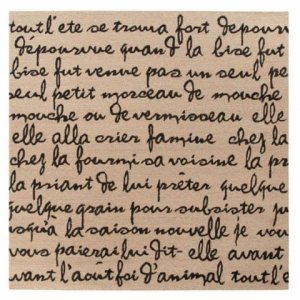 tout l'ete se trouva fort depourv
dépourvue quand la bise fut
bise fut venue pas un seul pe
seul petit morceau de mouche
mouche ou de vermisseau elle
elle alla crier famine chez la
chez la fourmi sa voisine la pr
la priant de lui prêter quelque
quelque grain pour subsister ju
usqu'à la saison nouvelle je vou
vous paierai lui dit-elle avant
vant l'août foi d'animal tout l'e